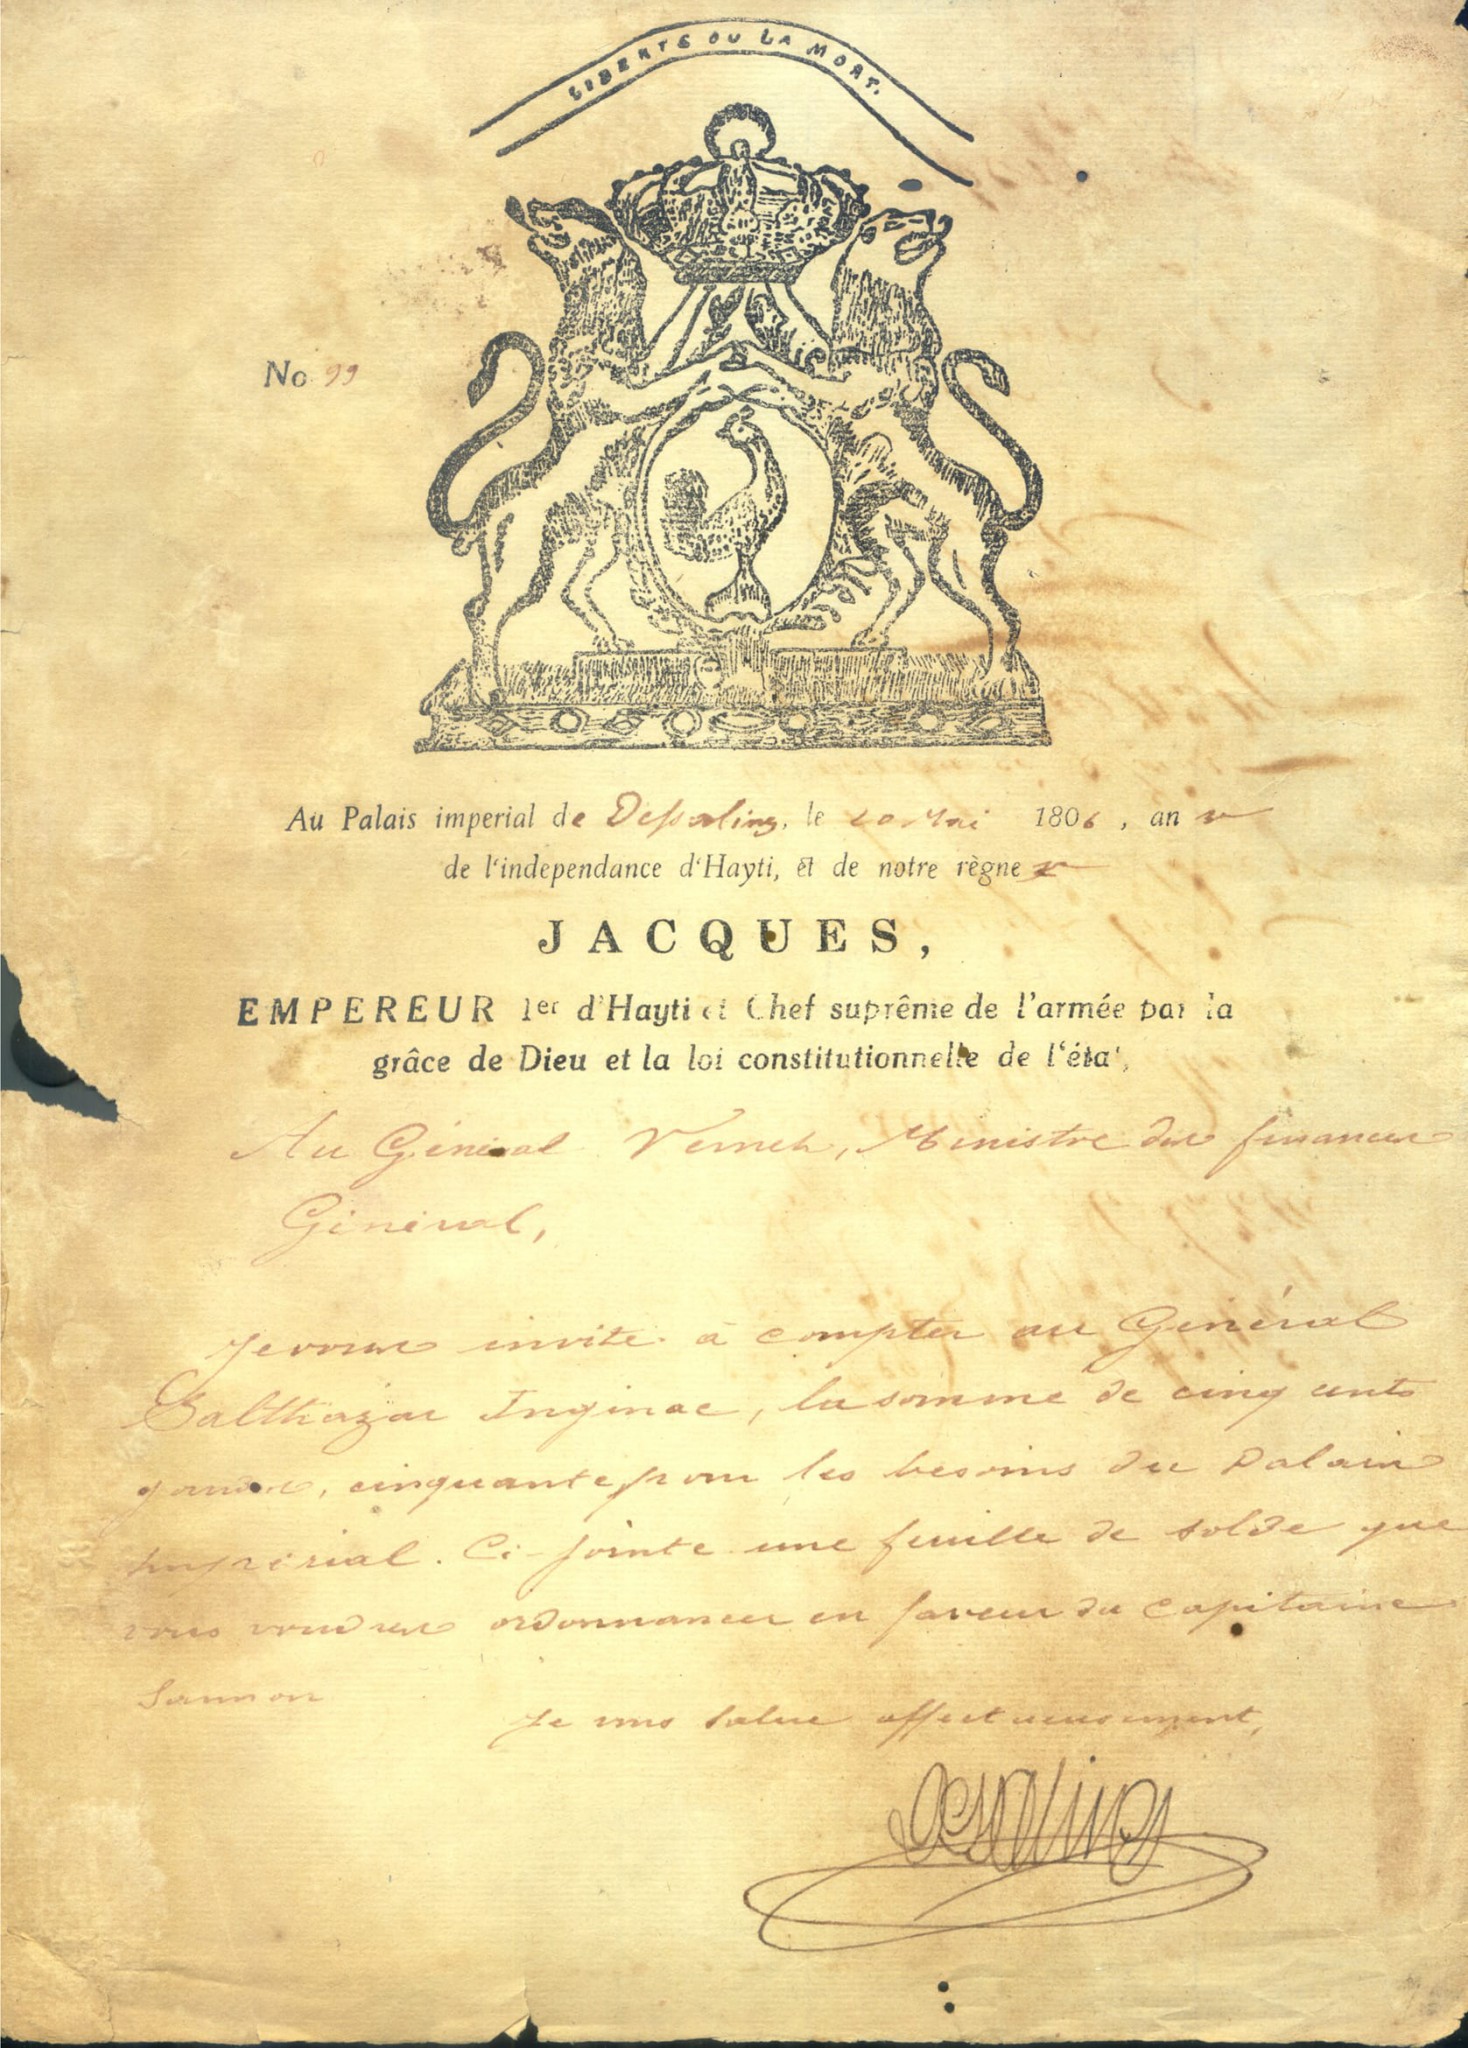 LIBERTE OU LA MORT.
No 99
Au Palais imperial de Dessalines, le 20 Mai 1806, an
de l'independance d'Hayti, et de notre règne
JACQUES,
EMPEREUR 1er d'Hayti et Chef suprême de l'armée par la
grâce de Dieu et la loi constitutionnelle de l'état,
Au Général Vernet, Ministre des finances
Général,
Je vous invite à compter au Général
Balthazar Inginac, la somme de cinq cents
gourdes, cinquante pour les besoins du Palais
Impérial. Ci-jointe une feuille de solde que
vous voudrez ordonnancer en faveur du Capitaine
Sannon
Je vous salue affectueusement,
Dessalines